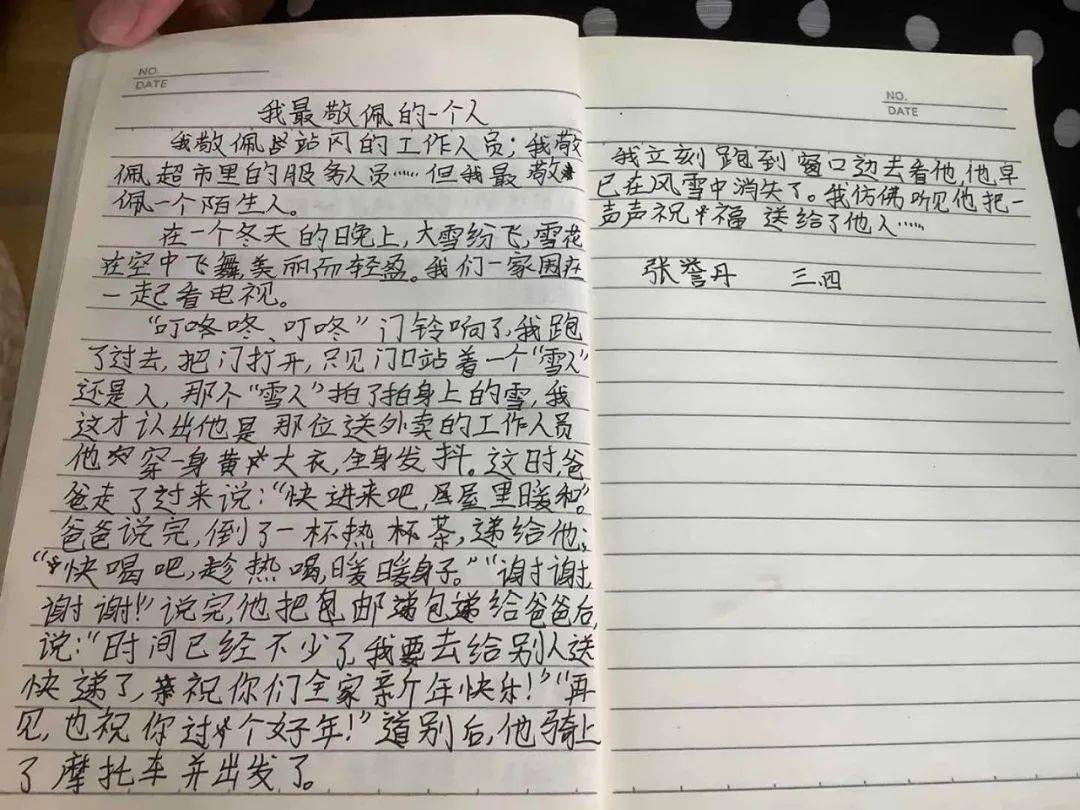 NO.
DATE
我最敬佩的一个人
我敬佩站冈的工作人员；我敬
佩超市里的服务人员……但我最敬
佩一个陌生人。
在一个冬天的晚上，大雪纷飞，雪花
在空中飞舞，美丽而轻盈。我们一家因在
一起看电视。
“叮咚咚、叮咚”门铃响了，我跑
了过去，把门打开，只见门口站着一个“雪人”
还是人，那个“雪人”拍了拍身上的雪，我
这才认出他是那位送外卖的工作人员
他穿一身黄大衣，全身发抖。这时，爸
爸走了过来说：“快进来吧，屋里暖和。”
爸爸说完，倒了一杯热杯茶，递给他：
“快喝吧，趁热喝，暖暖身子。”“谢谢，
谢谢！”说完，他把邮包递给爸爸后，
说：“时间已经不少了，我要去给别人送
快递了，祝你们全家新年快乐！”“再
见，也祝你过个好年！”道别后，他骑上
了摩托车并出发了。
NO.
DATE
我立刻跑到窗口边去看他，他早
已在风雪中消失了。我仿佛听见他把一
声声祝福送给了他人……
张誉丹 三.四